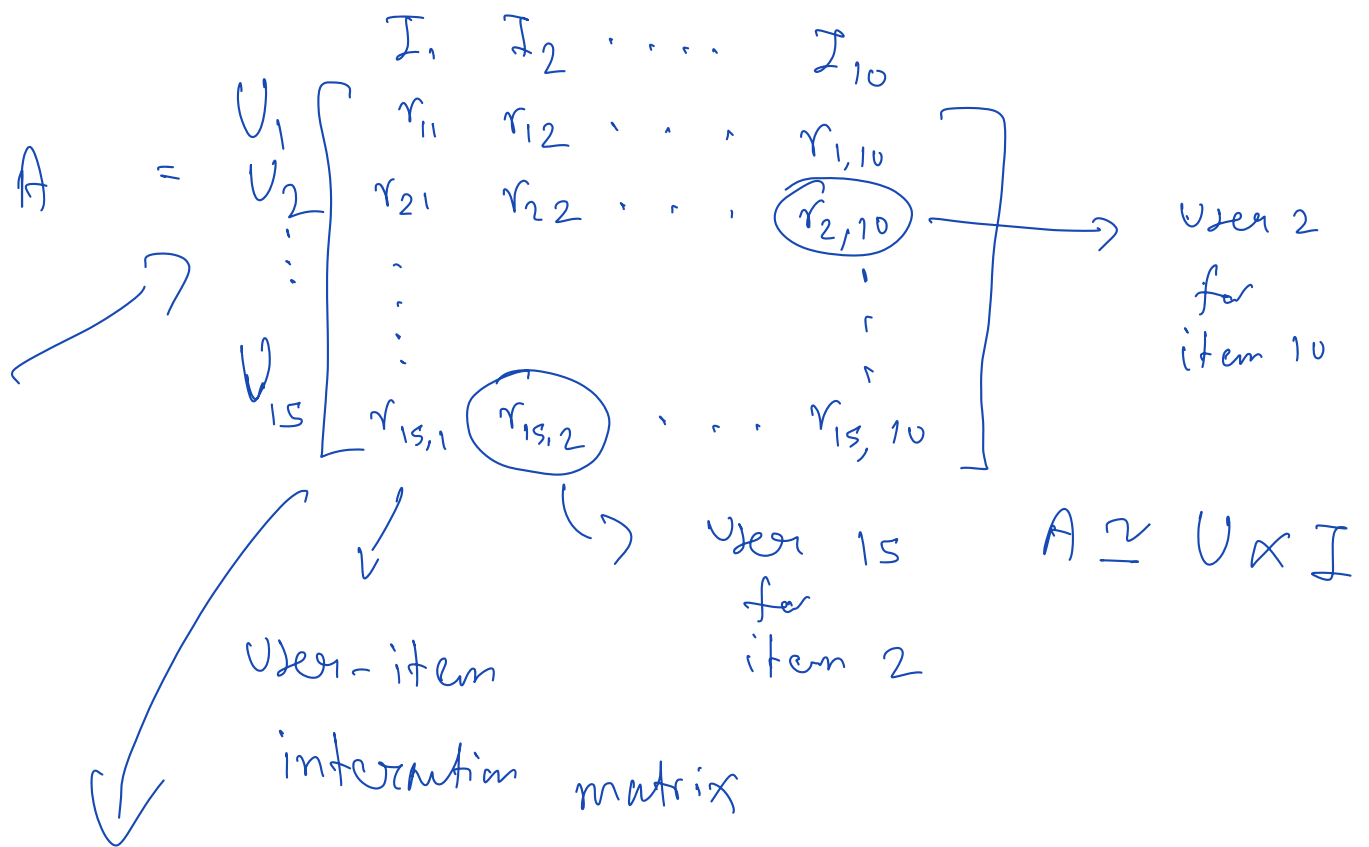 I₁ I₂ . . . . . I₁₀
U₁ r₁₁ r₁₂ . . . r₁,₁₀
A = U₂ r₂₁ r₂₂ . . . r₂,₁₀
⋮
U₁₅ r₁₅,₁ r₁₅,₂ . . . r₁₅,₁₀
User 2
for
item 10
User 15
for
item 2
A ≃ U × I
User-item
interaction matrix